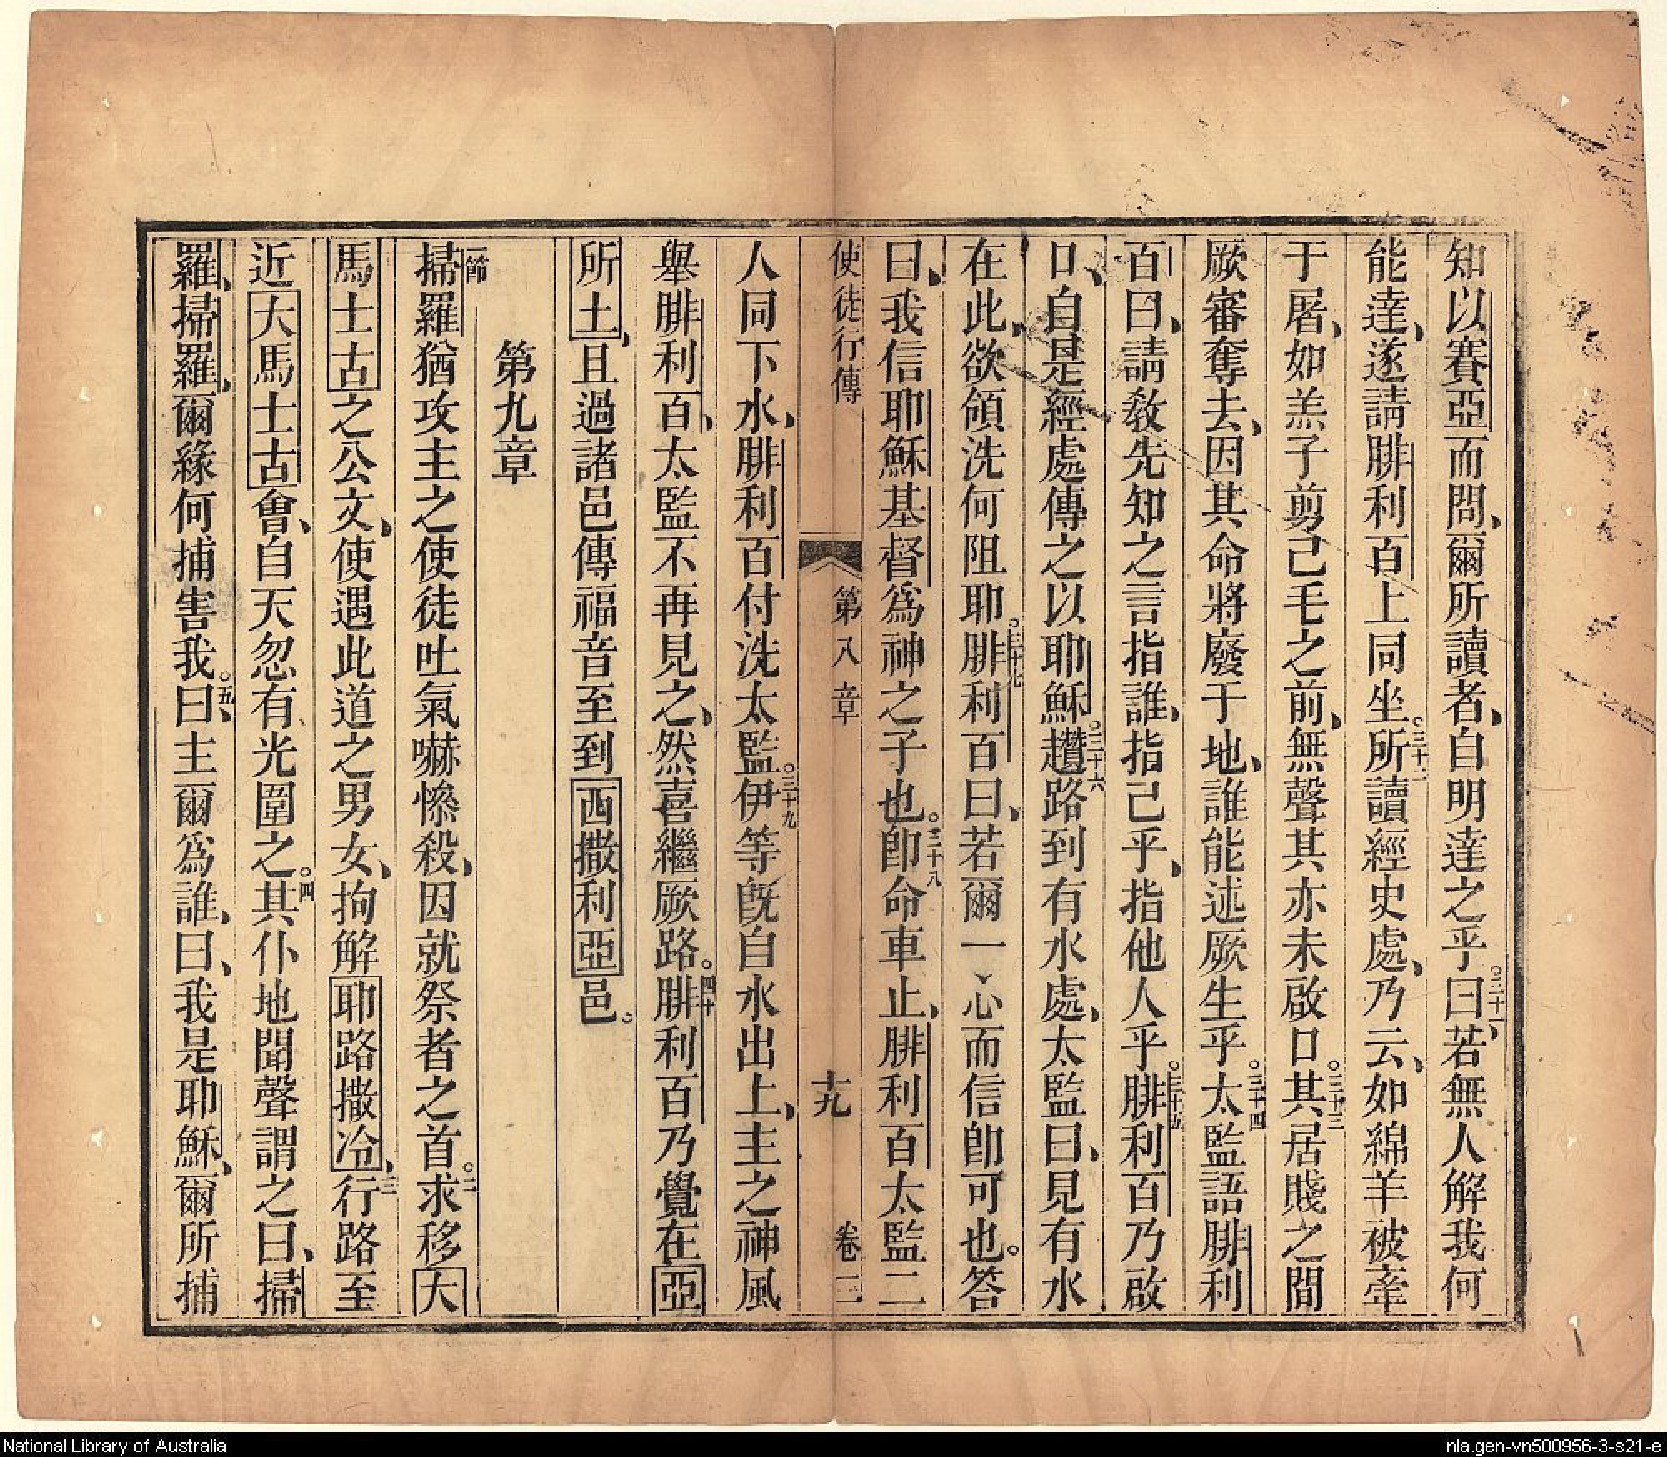 知以賽亞而問、爾所讀者、自明達之乎。三十一曰、若無人解我何
能達、遂請腓利百上同坐。三十二所讀經史處、乃云、如綿羊被牽
于屠、如羔子剪己毛之前、無聲其亦未啟口。三十三其居賤之間
厥審奪去、因其命將廢于地、誰能述厥生乎。三十四太監語腓利
百曰、請教先知之言指誰、指己乎、指他人乎。三十五腓利百乃啟
口、自是經處傳之以耶穌。三十六趲路到有水處、太監曰、見有水
在此、欲領洗何阻耶。三十七腓利百曰、若爾一心而信卽可也。答
曰、我信耶穌基督爲神之子也。三十八卽命車止、腓利百太監二
使徒行傳 第八章 十九 卷三
人同下水、腓利百付洗太監。三十九伊等旣自水出上、主之神風
舉腓利百、太監不再見之、然喜繼厥路。四十腓利百乃覺在亞
所土、且過諸邑傳福音至到西撒利亞邑。
第九章
一節掃羅猶攻主之使徒吐氣嚇慘殺、因就祭者之首。二求移大
馬士古之公文、使遇此道之男女、拘解耶路撒冷、三行路至
近大馬士古會、自天忽有光圍之。四其仆地聞聲謂之曰、掃
羅、掃羅、爾緣何捕害我。五曰、主爾爲誰、曰、我是耶穌、爾所捕
National Library of Australia
nla.gen-vn500956-3-s21-e